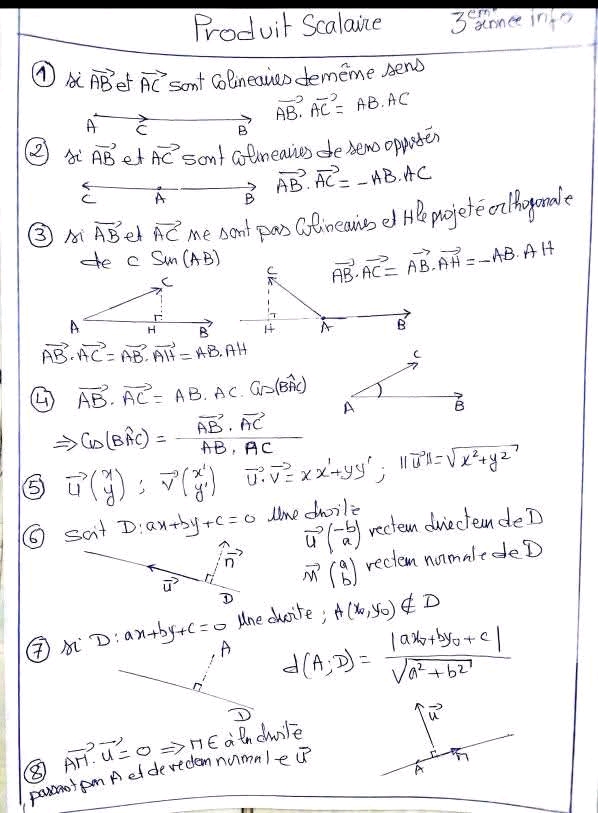 Produit Scalaire
3eme année info
① si AB→ et AC→ sont Colineaires de même sens
A C B
AB→. AC→ = AB.AC
② si AB→ et AC→ sont colineaires de sens opposés
C A B
AB→. AC→ = -AB.AC
③ si AB→ et AC→ ne sont pas Colineaires et H le projeté orthogonale
de C Sur (AB)
AB→. AC→ = AB→. AH→ = -AB. AH
C
A H B
C
H A B
AB→. AC→ = AB→. AH→ = AB. AH
④ AB→. AC→ = AB. AC. Cos(BÂC)
C
A B
⇒ Cos(BÂC) = AB→ . AC→ / AB . AC
⑤ u→ (x y) ; v→ (x' y') u→. v→ = xx' + yy' ; ||u→|| = √x²+y²
⑥ soit D: ax+by+c=0 une droite
u→ (-b a) vecteur directeur de D
n→ (a b) vecteur normale de D
n→
u→
D
⑦ si D: ax+by+c=0 une droite ; A(x₀,y₀) ∉ D
A
d(A;D) = |ax₀+by₀+c| / √a²+b²
D
⑧ AM→. u→ = 0 ⇒ M ∈ à la droite
passant par A et de vecteur normale u→
u→
A M